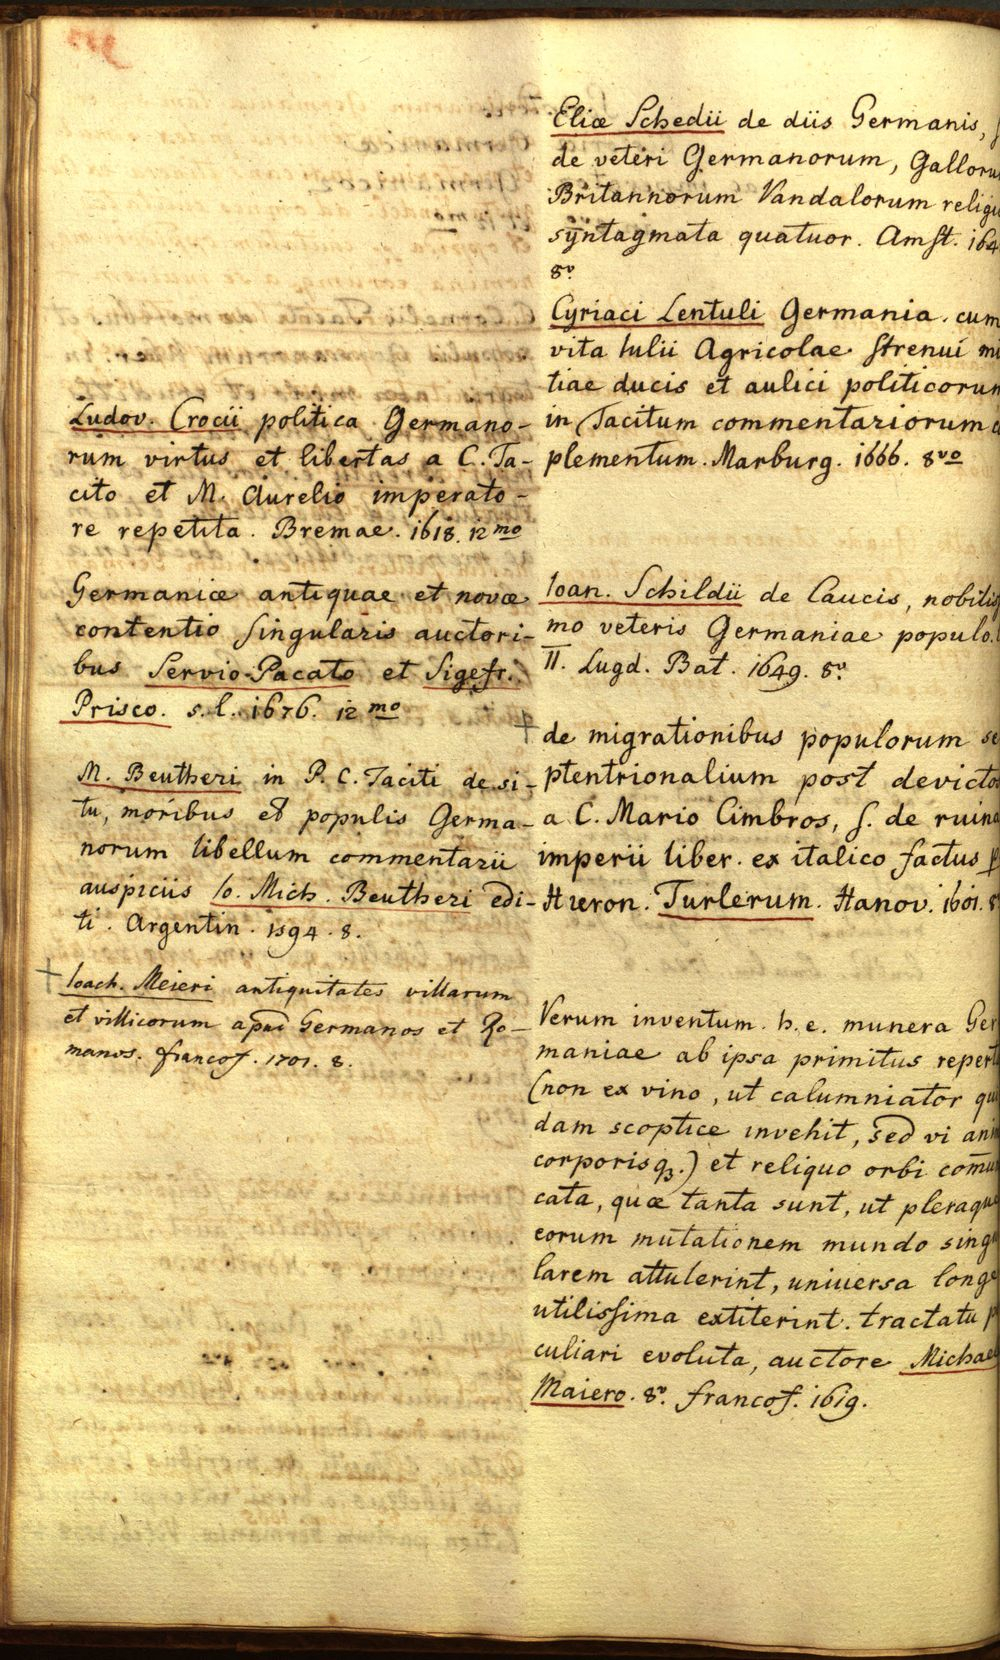 Ludov. Crocii politica Germano-
rum virtus et libertas a C. Ta-
cito et M. Aurelio imperato-
re repetita. Bremae. 1618. 12mo
Germaniæ antiquae et novæ
contentio singularis auctori-
bus Servio Pacato et Sigefr.
Prisco. s. l. 1676. 12mo
M. Beutheri in P. C. Taciti de si-
tu, moribus et populis Germa-
norum libellum commentarii
auspiciis Io. Mich. Beutheri edi-
ti. Argentin. 1594. 8.
+ Ioach. Meieri antiquitates villarum
et villicorum apud Germanos et Ro-
manos. francof. 1701. 8.
Eliæ Schedii de diis Germanis, s
de veteri Germanorum, Galloru
Britannorum Vandalorum religi
syntagmata quatuor. Amst. 164
8o.
Cyriaci Lentuli Germania. cum
vita Iulii Agricolae strenui mi
tiae ducis et aulici politicorum
in Tacitum commentariorum
plementum. Marburg. 1666. 8vo
Ioan. Schildii de Caucis, nobilis
mo veteris Germaniae populo. l
II. Lugd. Bat. 1649. 8o.
+ de migrationibus populorum se
ptentrionalium post devicto
a C. Mario Cimbros, s. de ruina
imperii liber. ex italico factus p
Hieron. Turlerum. Hanov. 1601. 8
Verum inventum. h. e. munera Ger
maniae ab ipsa primitus repert
(non ex vino, ut calumniator qui
dam scoptice invehit, sed vi ani
corporisq3.) et reliquo orbi com̄un
cata, quæ tanta sunt, ut pleraque
eorum mutationem mundo singu
larem attulerint, universa longe
utilissima extiterint. tractatu p
culiari evoluta, auctore Michael
Maiero. 8o. francof. 1619.